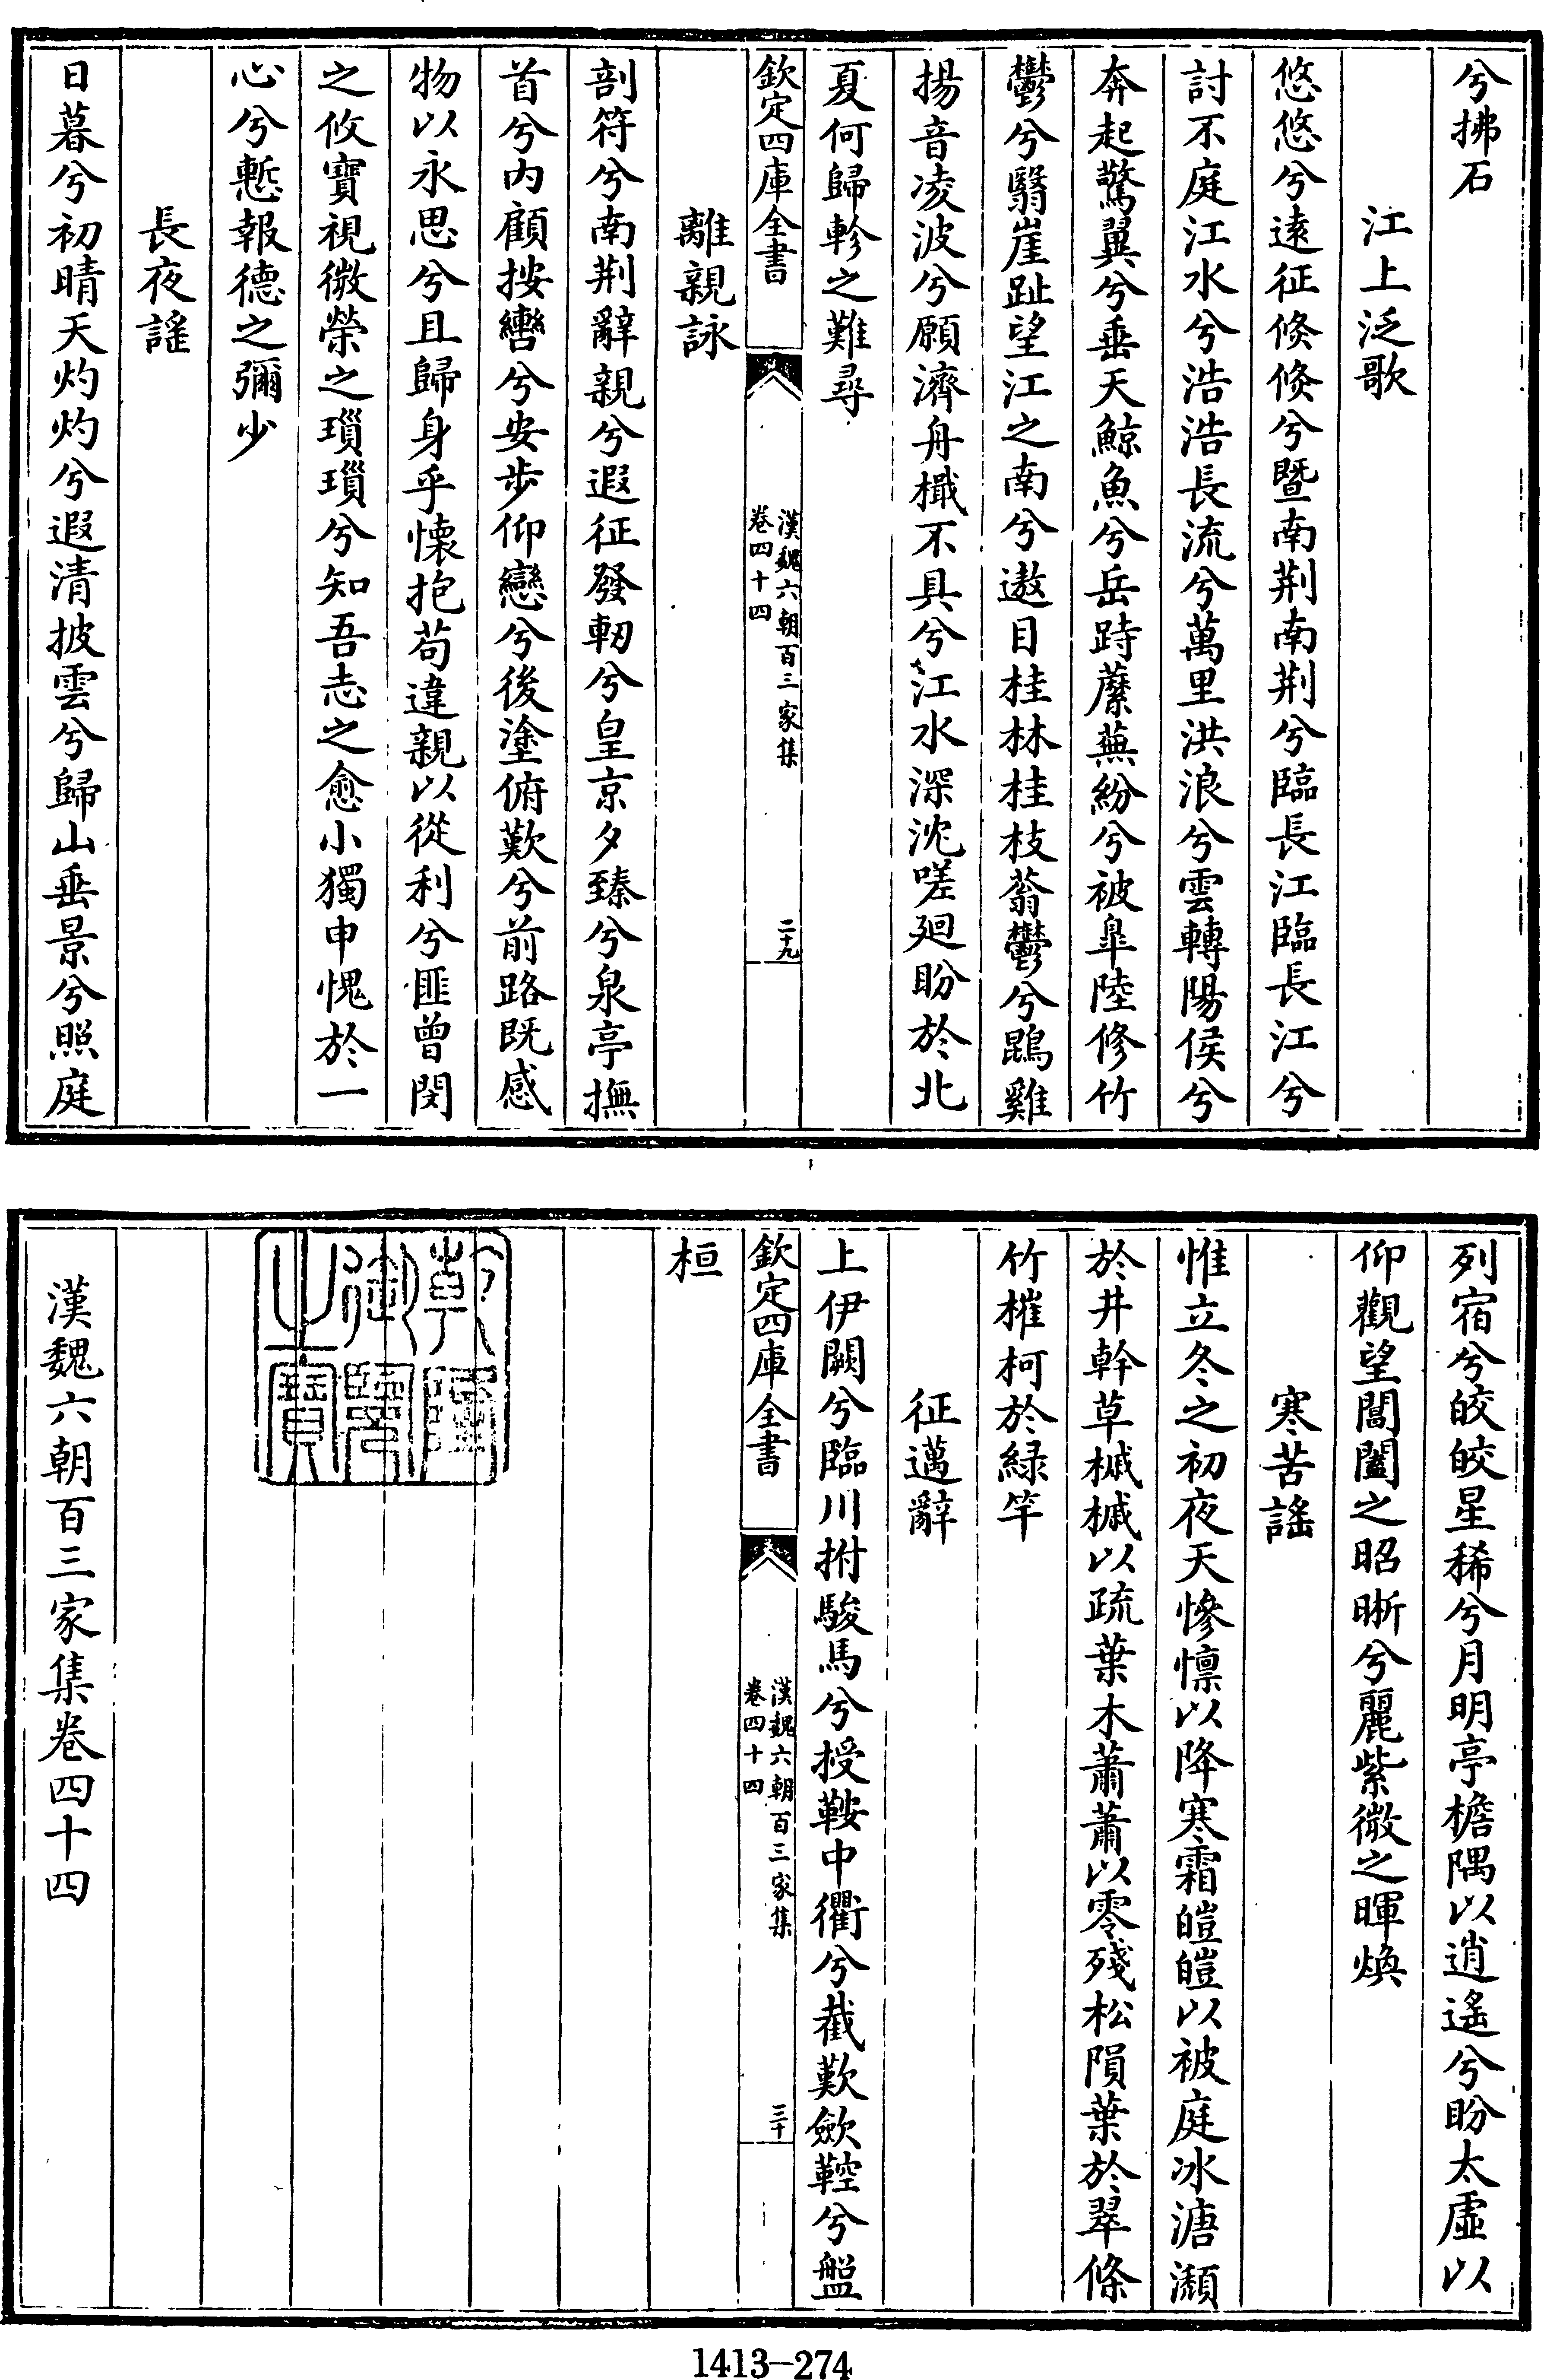 兮拂石
江上泛歌
悠悠兮遠征倐倐兮暨南荆南荆兮臨長江臨長江兮
討不庭江水兮浩浩長流兮萬里洪浪兮雲轉陽侯兮
奔起驚翼兮垂天鯨魚兮岳跱蘪蕪紛兮被皐陸修竹
鬱兮翳崖趾望江之南兮遨目桂林桂枝蓊鬱兮鵾雞
揚音凌波兮願濟舟檝不具兮江水深沈嗟廻盼於北
夏何歸軫之難尋
欽定四庫全書
漢魏六朝百三家集
卷四十四
二十九
離親詠
剖符兮南荆辭親兮遐征發軔兮皇京夕臻兮泉亭撫
首兮内顧按轡兮安步仰戀兮後塗俯歎兮前路既感
物以永思兮且歸身乎懐抱苟違親以從利兮匪曽閔
之攸寳視微榮之瑣瑣兮知吾志之愈小獨申愧於一
心兮慙報徳之彌少
長夜謠
日暮兮初晴天灼灼兮遐清披雲兮歸山垂景兮照庭
列宿兮皎皎星稀兮月明亭檐隅以逍遙兮盼太虛以
仰觀望閶闔之昭晣兮麗紫微之暉煥
寒苦謠
惟立冬之初夜天慘懔以降寒霜皚皚以被庭冰溏瀬
於井幹草槭槭以疏葉木蕭蕭以零殘松隕葉於翠條
竹摧柯於緑竿
征邁辭
上伊闕兮臨川拊駿馬兮授鞍中衢兮截歎歛鞚兮盤
欽定四庫全書
漢魏六朝百三家集
卷四十四
三十
桓
乾隆
御覽
之寶
漢魏六朝百三家集卷四十四
1413-274